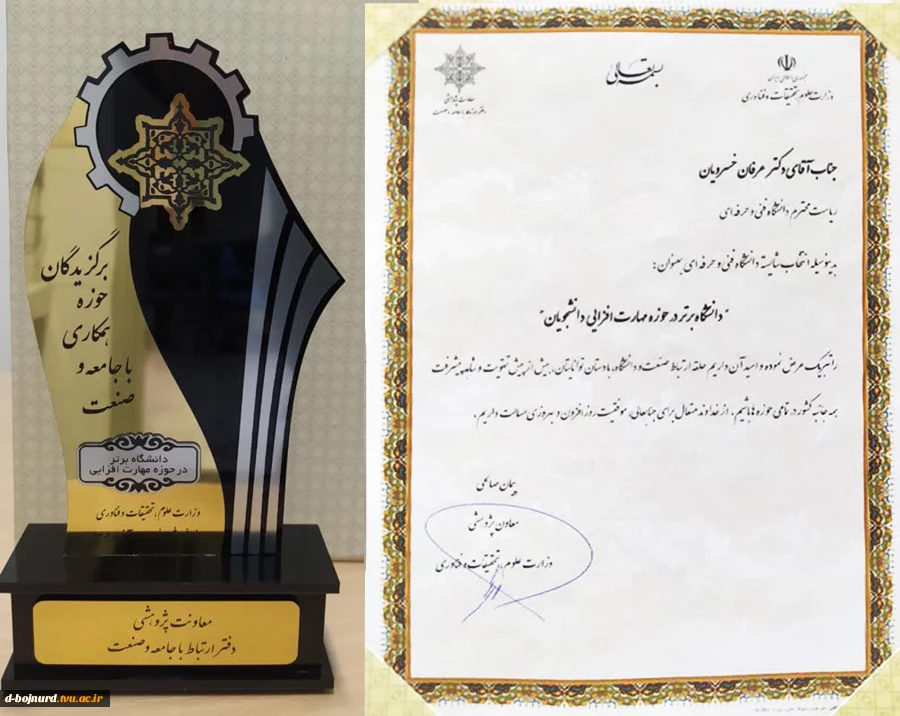 برگزیدگان
حوزه
همکاری
با جامعه و
صنعت
دانشگاه برتر
در حوزه مهارت افزایی
وزارت علوم، تحقیقات و فناوری
معاونت پژوهشی
دفتر ارتباط با جامعه و صنعت
d-bojnurd.tvu.ac.ir
بسمه تعالی
جمهوری اسلامی ایران
وزارت علوم، تحقیقات و فناوری
معاونت پژوهشی
دفتر ارتباط با جامعه و صنعت
جناب آقای دکتر عرفان خسرویان
ریاست محترم دانشگاه فنی و حرفه ای
بدینوسیله انتخاب شایسته دانشگاه فنی و حرفه ای بعنوان:
"دانشگاه برتر در حوزه مهارت افزایی دانشجویان"
را تبریک عرض نموده و امید آن داریم حلقه ارتباط صنعت و دانشگاه، با دستان توانایتان، بیش از پیش تقویت و شاهد پیشرفت
همه جانبه کشور در تمامی حوزه ها باشیم. از خداوند متعال برای جنابعالی، موفقیت روز افزون و بهروزی مسالت داریم.
پیمان صالحی
معاون پژوهشی
وزارت علوم، تحقیقات و فناوری